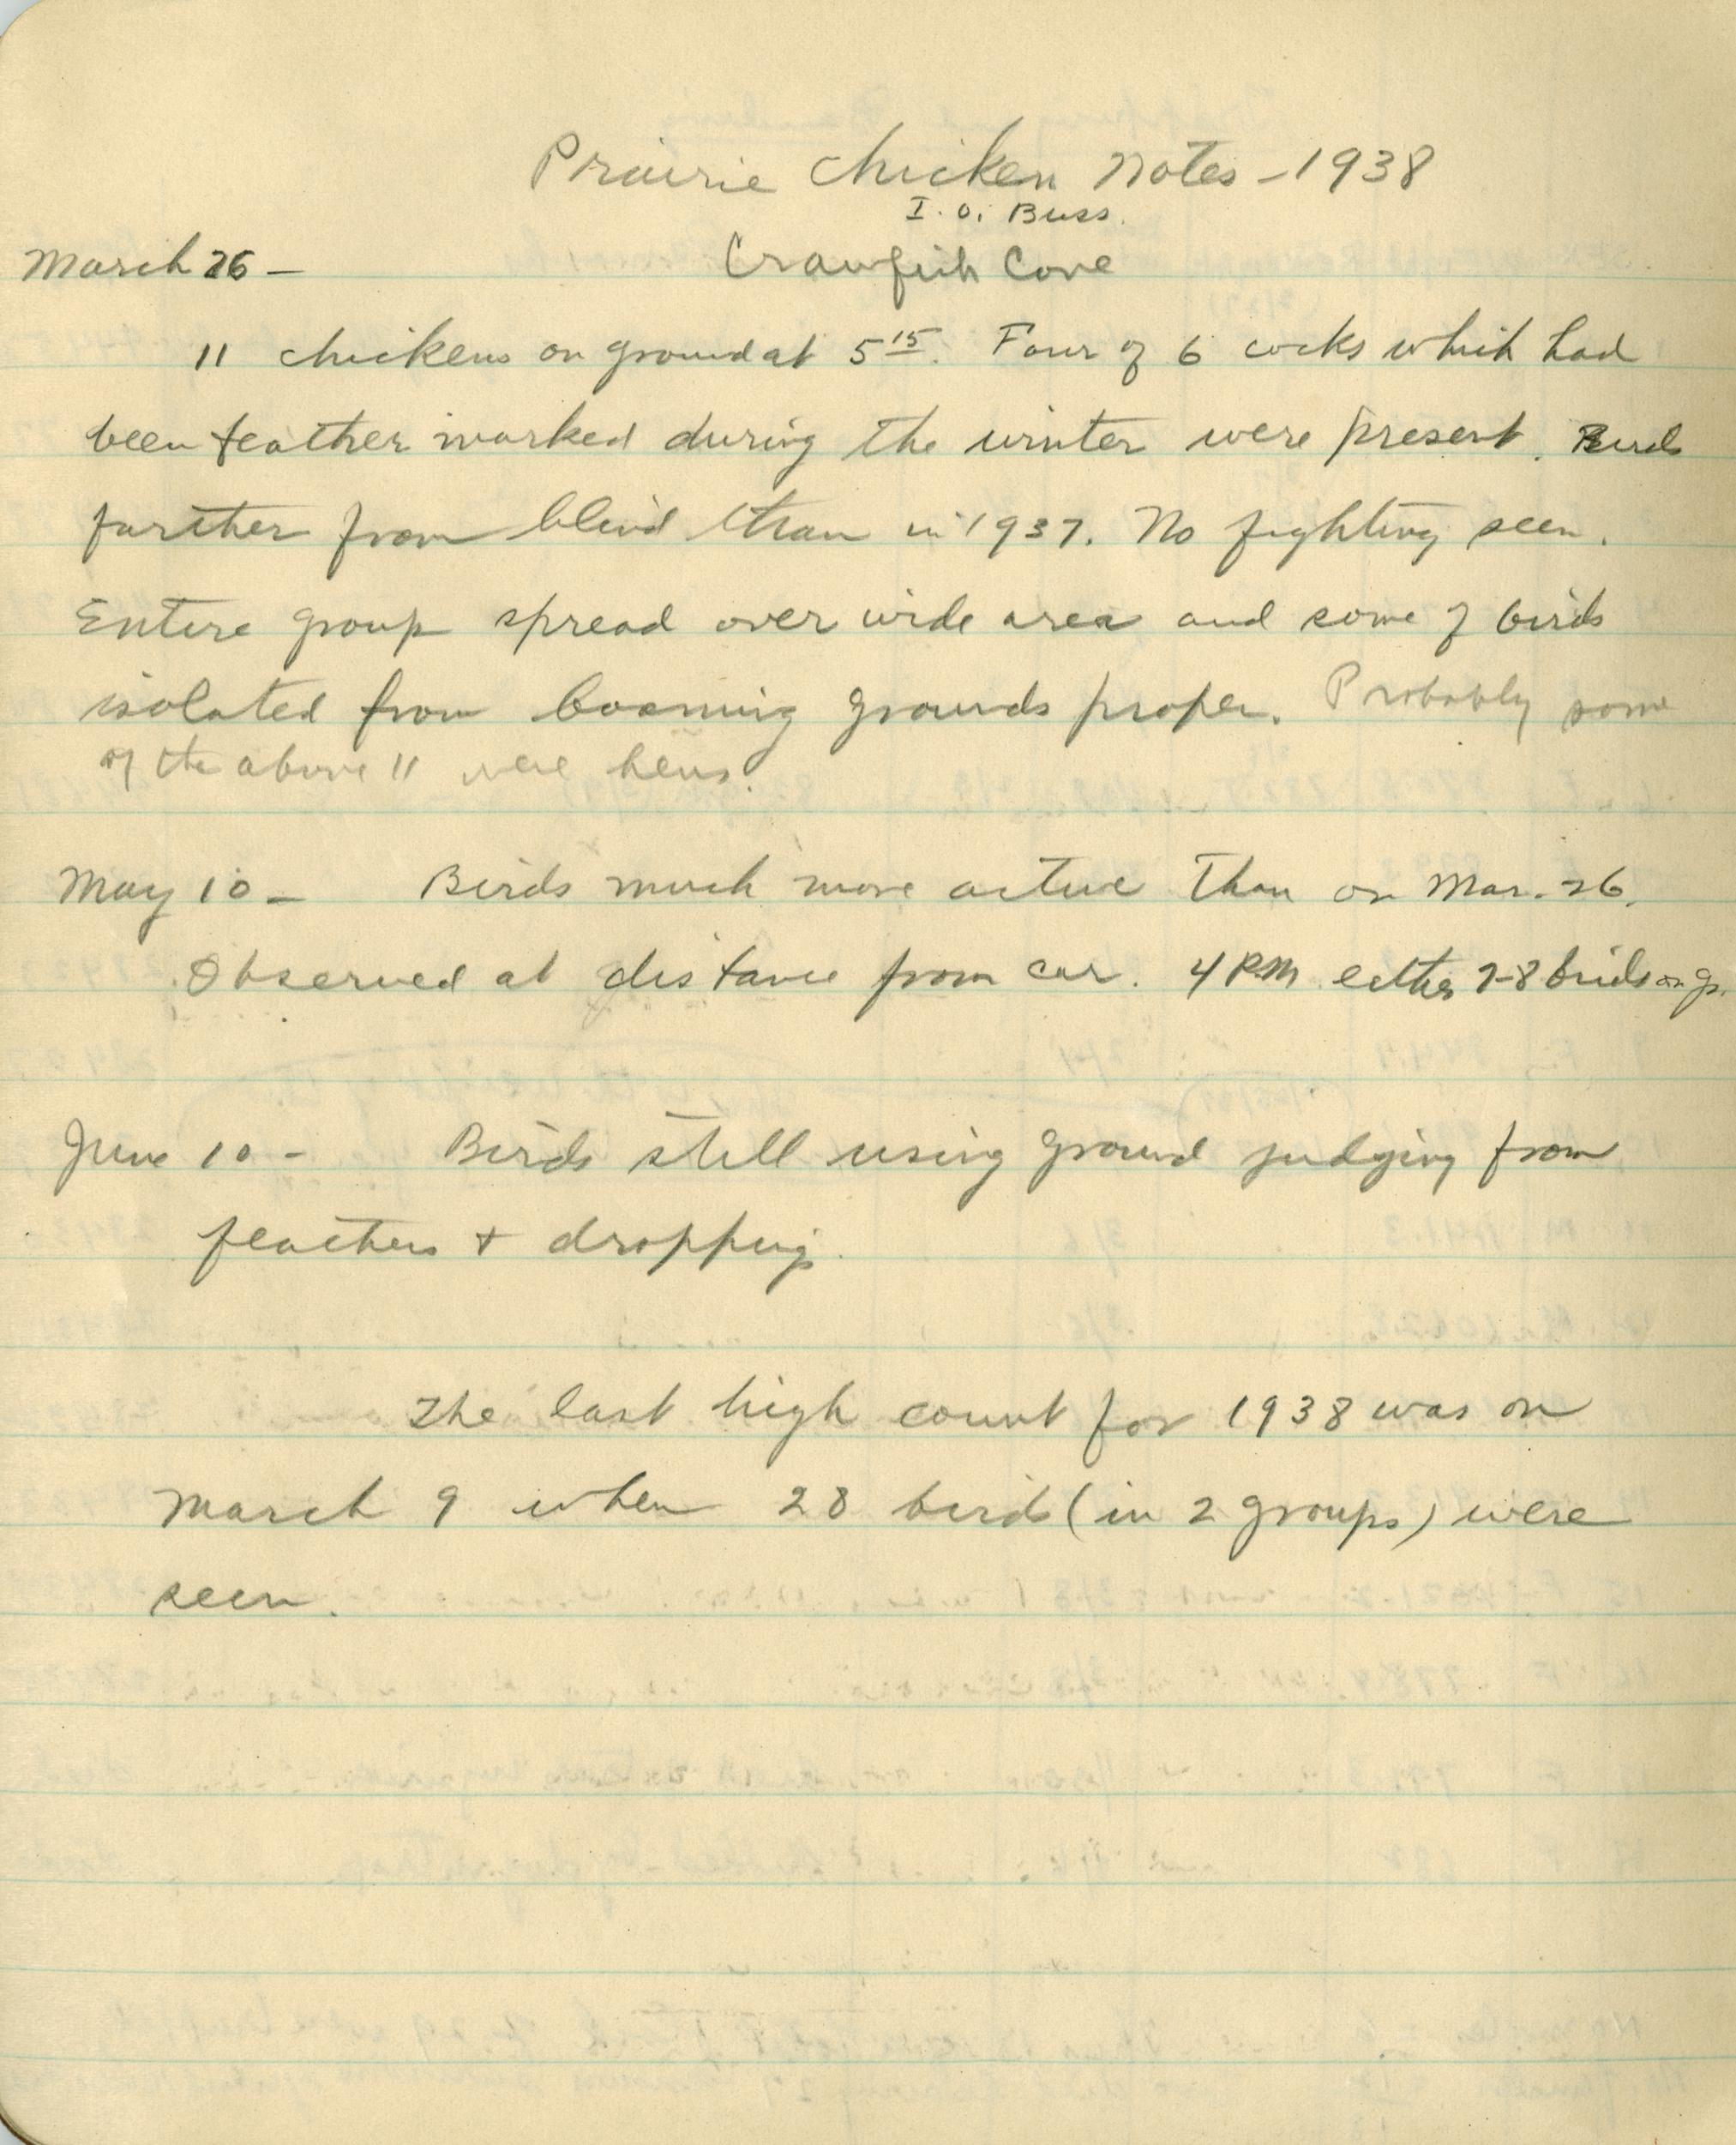 Prairie Chicken Notes - 1938
I. O. Buss.
March 26 - Crawfish Cove
11 chickens on ground at 5 15. Four of 6 cocks which had
been feather marked during the winter were present. Birds
further from blind than in 1937. No fighting seen.
Entire group spread over wide area and some of birds
isolated from booming grounds proper. Probably some
of the above 11 were hens.
May 10 - Birds much more active than on Mar. 26.
Observed at distance from car. 4 PM either 7-8 birds on gr.
June 10 - Birds still using ground judging from
feathers + droppings.
The last high count for 1938 was on
March 9 when 28 birds (in 2 groups) were
seen.